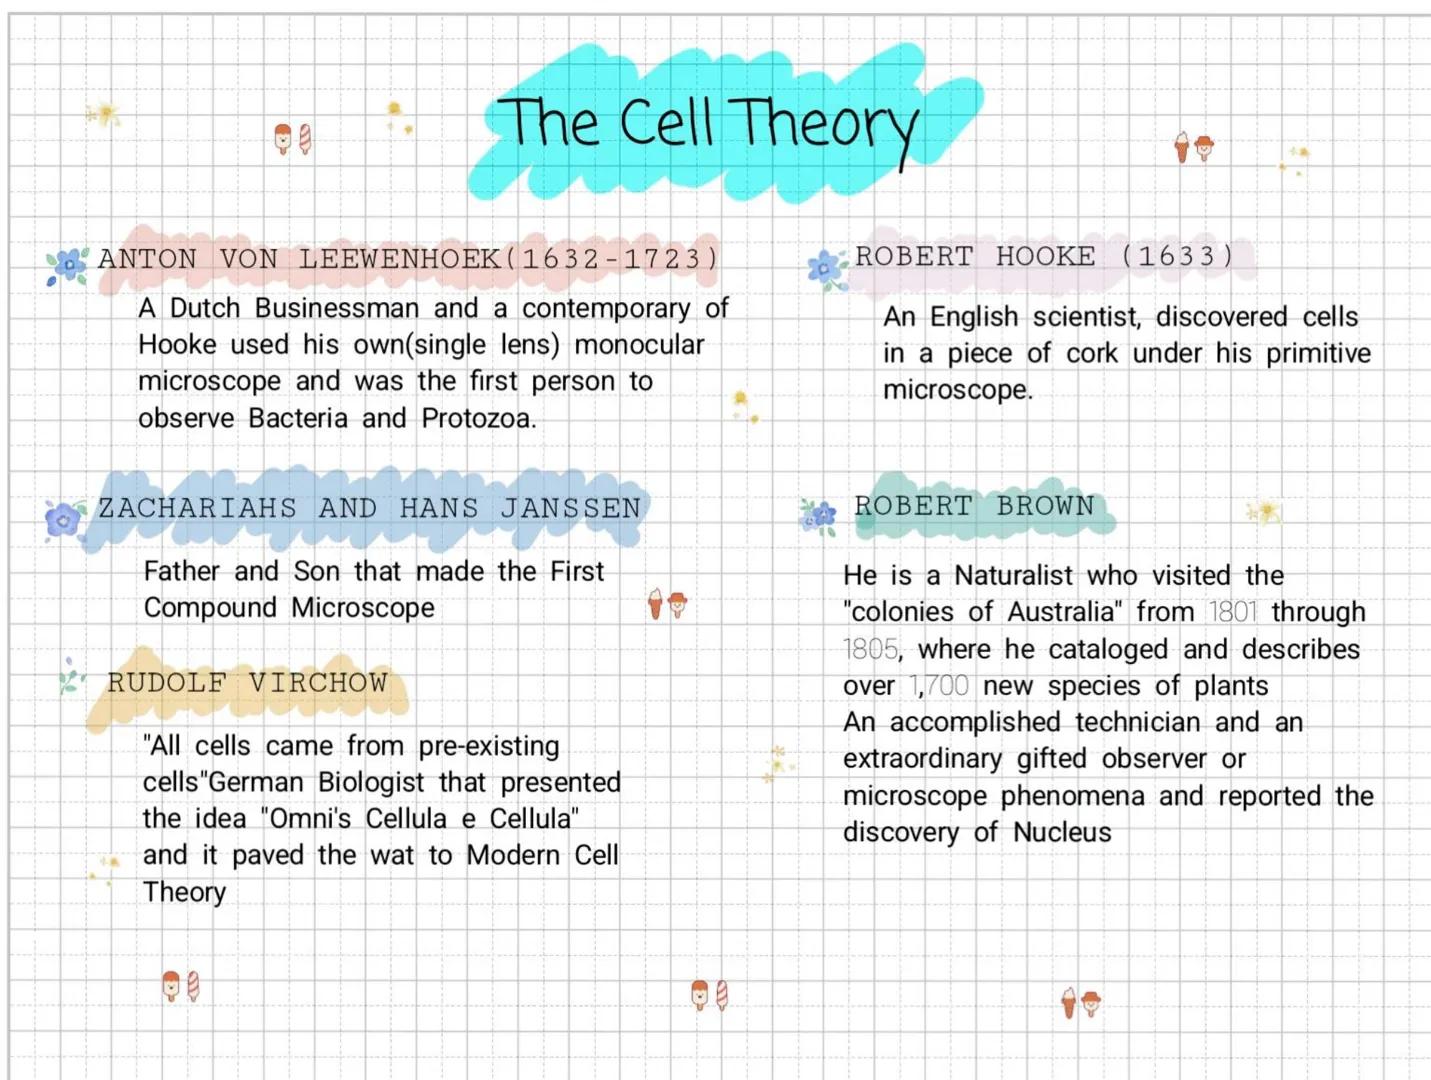 The Cell Theory
ANTON VON LEEWENHOEK(1632-1723)
A Dutch Businessman and a contemporary of
Hooke used his own(single lens) monocular
microscope and was the first person to
observe Bacteria and Protozoa.
ZACHARIAHS AND HANS JANSSEN
Father and Son that made the First
Compound Microscope
RUDOLF VIRCHOW
"All cells came from pre-existing
cells"German Biologist that presented
the idea "Omni's Cellula e Cellula"
and it paved the wat to Modern Cell
Theory
ROBERT HOOKE (1633)
An English scientist, discovered cells
in a piece of cork under his primitive
microscope.
ROBERT BROWN
He is a Naturalist who visited the
"colonies of Australia" from 1801 through
1805, where he cataloged and describes
over 1,700 new species of plants
An accomplished technician and an
extraordinary gifted observer or
microscope phenomena and reported the
discovery of Nucleus